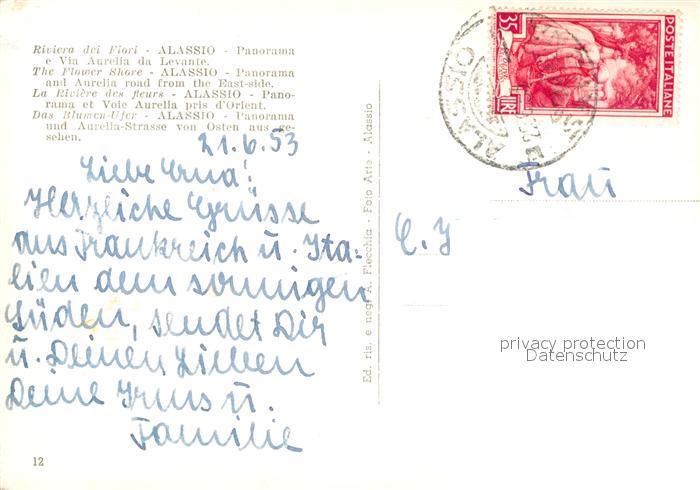 Riviera dei Fiori - ALASSIO - Panorama
e Via Aurelia da Levante.
The Flower Shore - ALASSIO - Panorama
and Aurelia road from the East-side.
La Rivière des fleurs - ALASSIO - Pano-
rama et Voie Aurelia pris d'Orient.
Das Blumen-Ufer - ALASSIO - Panorama
und Aurelia-Strasse von Osten aus ge-
sehen.
21.6.53
Liebe Erna!
Herzliche Grüsse
aus Frankreich u. Ita-
lien dem sonnigen
Süden, sendet Dir
u. Deinen Lieben
Deine Irms u.
Familie
12
Ed. ris. e neg. A. Fiecchia - Foto Arte - Alassio
35
LIRE
POSTE ITALIANE
ALASSIO
Frau
E. J
privacy protection
Datenschutz